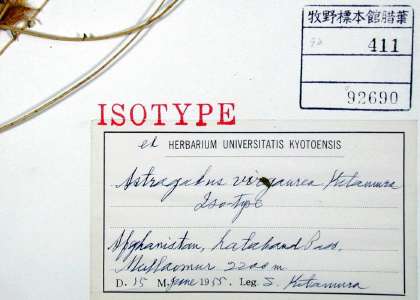 牧野標本館腊葉
411
92690
ISOTYPE
ex HERBARIUM UNIVERSITATIS KYOTOENSIS
Astragalus virgaurea Kitamura
Isotype
Afghanistan, Lataband Pass.
Mullaomur 2200 m
D. 15 M. June 1955. Leg. S. Kitamura